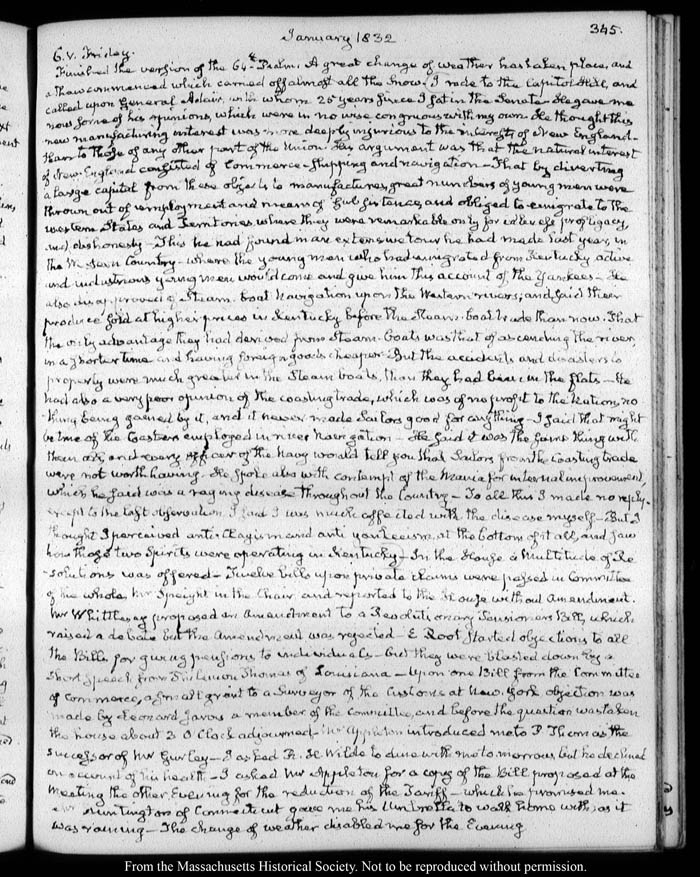 January 1832
345.
6. V. Friday.
Finished the version of the 64th Psalm. A great change of weather has taken place, and
a thaw commenced which carried off almost all the Snow. I rode to the Capitol Hill, and
called upon General Adair, with whom 25 years since I sat in the Senate. He gave me
now some of his opinions, which were in no wise congruous with my own. He thought this
new manufacturing interest was more deeply injurious to the interests of New England
than to those of any other part of the Union. His argument was that the natural interest
of New England consisted of Commerce Shipping and navigation — That by diverting
a large capital from these objects to manufactures, great numbers of young men were
thrown out of employment and means of Subsistence, and obliged to emigrate to the
western States and Territories, where they were remarkable only for idleness profligacy,
and dishonesty — This he had found in an extensive tour he had made last year, in
the Western Country — where the young men who had emigrated from Kentucky active
and industrious young men would come and give him this account of the Yankees — He
also disapproved of Steam-boat Navigation upon the Western rivers, and said their
produce sold at higher prices in Kentucky before the Steam-boat trade than now. That
the only advantage they had derived from Steam-boats was that of ascending the river,
in a shorter time and having foreign goods cheaper — But the accidents and disasters to
property were much greater in the Steam boats, than they had been in the flats — He
had also a very poor opinion of the coasting trade, which was of no profit to the Nation, no
thing being gained by it, and it never made Sailors good for anything — I said that might
be true of the Coasters employed in river Navigation — He said it was the same thing with
them all, and every officer of the Navy would tell you that Sailors from the Coasting trade
were not worth having. He spoke also with contempt of the Mania for internal improvement,
which he said was a raging disease throughout the Country — To all this I made no reply,
except to the last observation. I said I was much affected with the disease myself — But I
thought I perceived anti-Clayism and anti yankeeism at the bottom of it all, and saw
how those two Spirits were operating in Kentucky — In the House a Multitude of Re
-solutions was offered — Twelve bills upon private claims were passed in Committee
of the whole, Mr Speight in the Chair and reported to the House without Amendment.
Mr Whittlesey proposed an Amendment to a Revolutionary Pensioners Bill, which
raised a debate but the Amendment was rejected — E Root started objections to all
the Bills for giving pensions to individuals — but they were blasted down by a
Short Speech from Philemon Thomas of Louisiana — Upon one Bill from the Committee
of Commerce, a small grant to a Surveyor of the Customs at New-York objection was
made by Leonard Jarvis a member of the Committee, and before the question was taken
the house about 3 O Clock adjourned — Mr Appleton introduced me to P. Thomas the
successor of Mr Gurley — I asked R. H. Wilde to dine with me to morrow, but he declined
on account of his health — I asked Mr Appleton for a copy of the Bill proposed at the
meeting the other Evening for the reduction of the Tariff — which he promised me.
Mr Huntington of Connecticut gave me his Umbrella to walk home with, as it
was raining — The change of weather disabled me for the Evening
From the Massachusetts Historical Society. Not to be reproduced without permission.